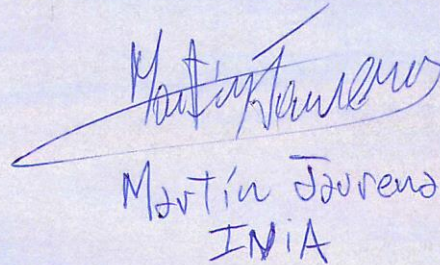 Martín Jaurena
Martín Jaurena
INIA